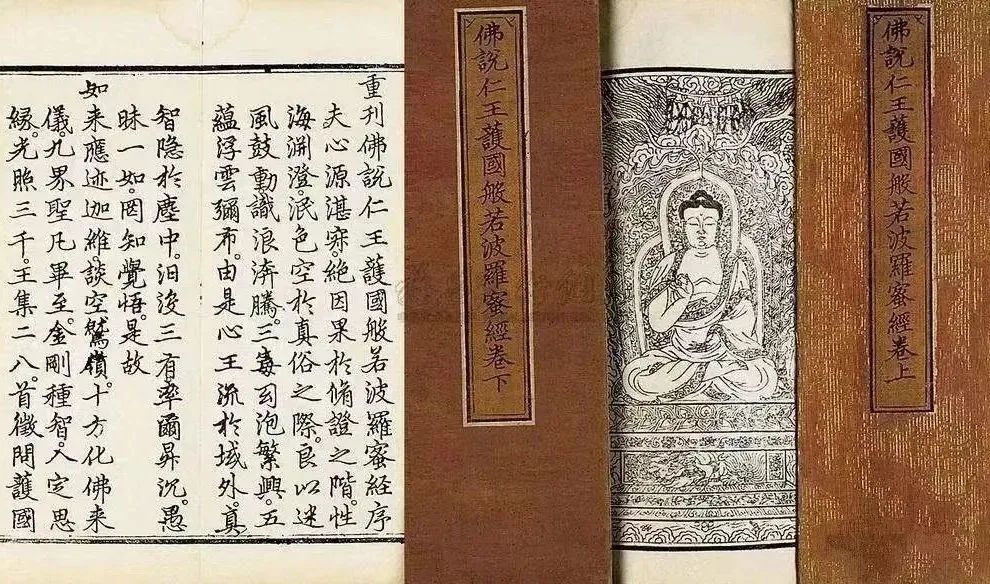 佛說仁王護國般若波羅蜜經卷上
佛說仁王護國般若波羅蜜經卷下
重刊佛說仁王護國般若波羅蜜経序
夫心源湛寂。絕因果於脩證之階。性
海淵澄。泯色空於真俗之際。良以迷
風鼓動識浪騰。三毒幻泡繁興。五
蘊浮雲彌布。由是心王流於域外。真
智隐於塵中。汩沒三有率爾昇沉。愚
昧一如。罔知覺悟。是故
如来應迹迦維。談空鷲嶺。十方化佛来
儀。九界聖凡畢至。金剛種智。入定思
縁。光照三千。王集二八。首徵問護國